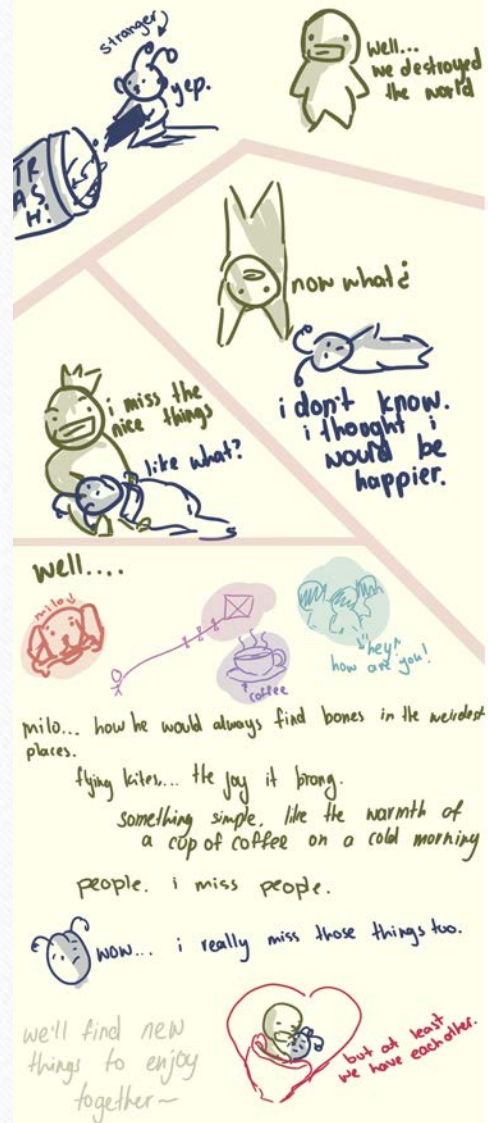 stranger
yep.
TR
AS
H.
well...
we destroyed
the world
now what¿
i don't know.
i thought i
would be
happier.
i miss the
nice things
like what?
well....
milo
coffee
"hey!
how are you!
milo... how he would always find bones in the weirdest
places.
flying kites.... the joy it brong.
something simple. like the warmth of
a cup of coffee on a cold morning
people. i miss people.
wow... i really miss those things too.
we'll find new
things to enjoy
together~
but at least
we have each other.